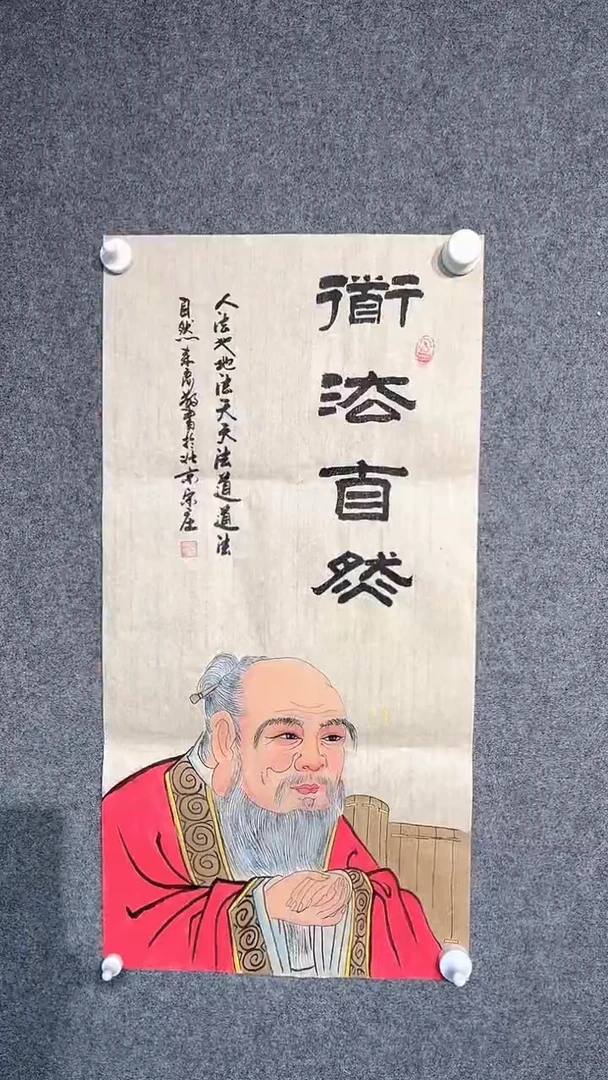 衜法自然
人法地地法天天法道道法
自然 敬書於北京宋庄